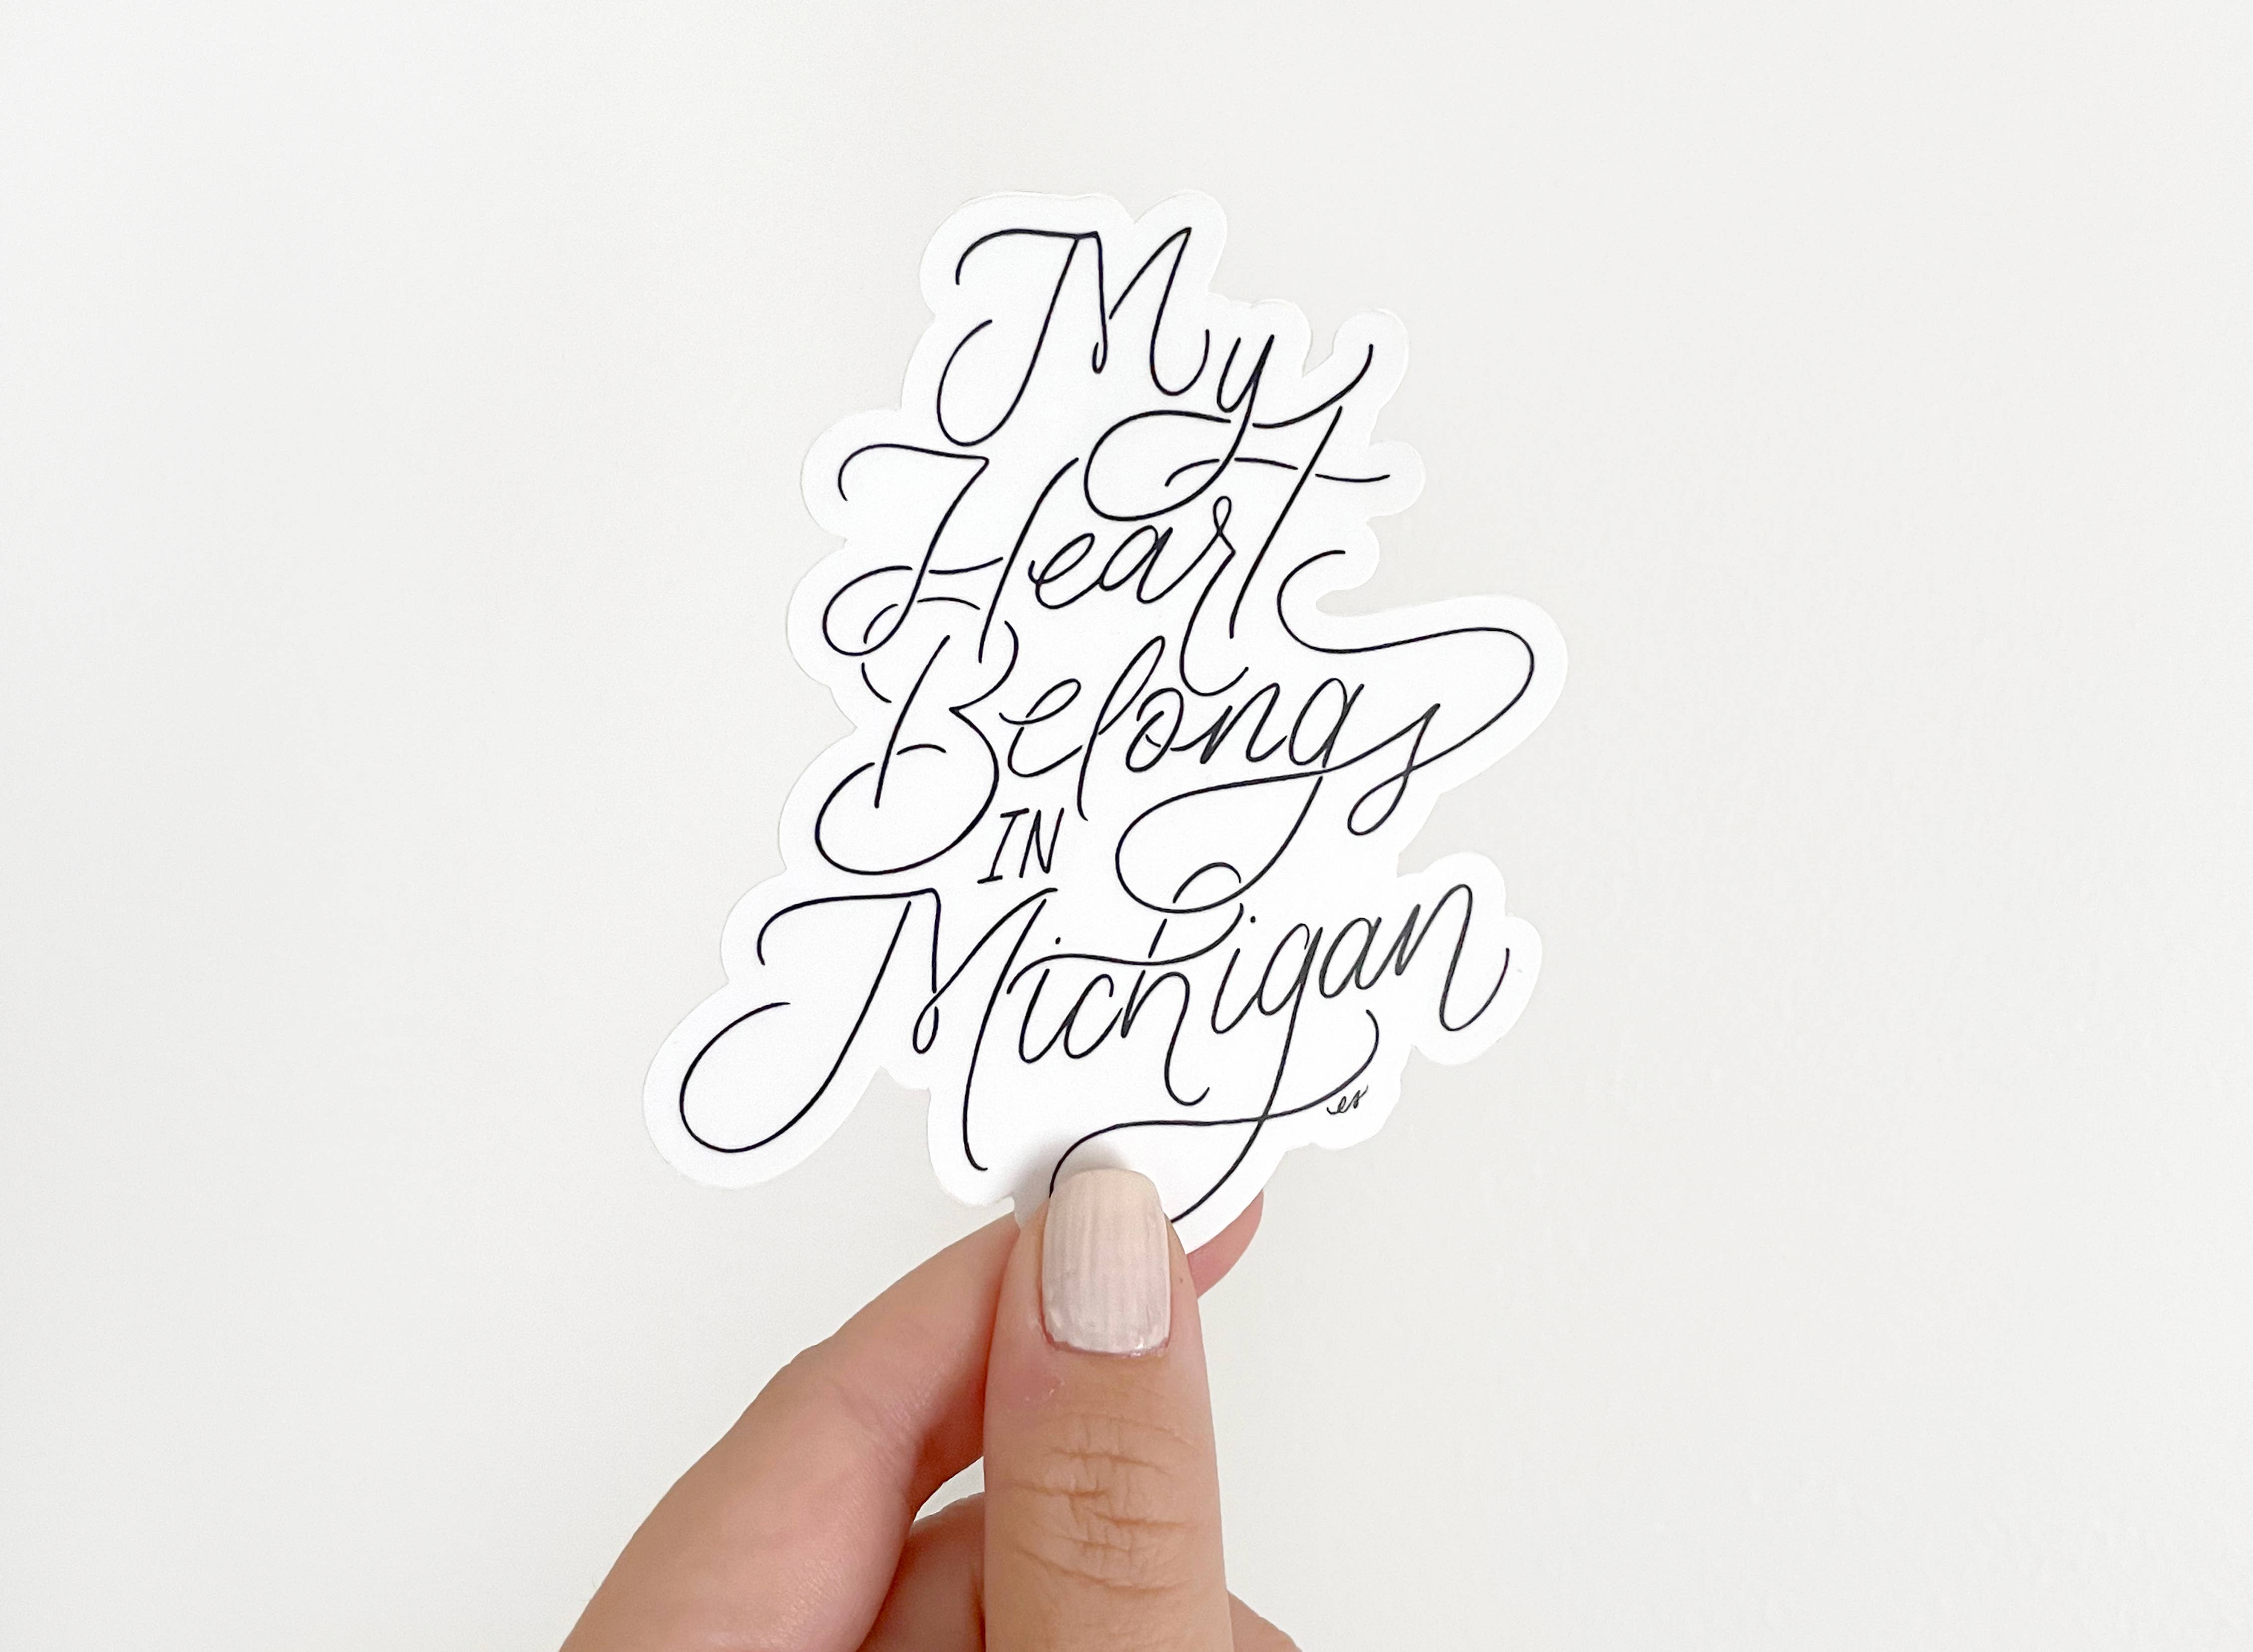 My
Heart
Belongs
IN
Michigan
es